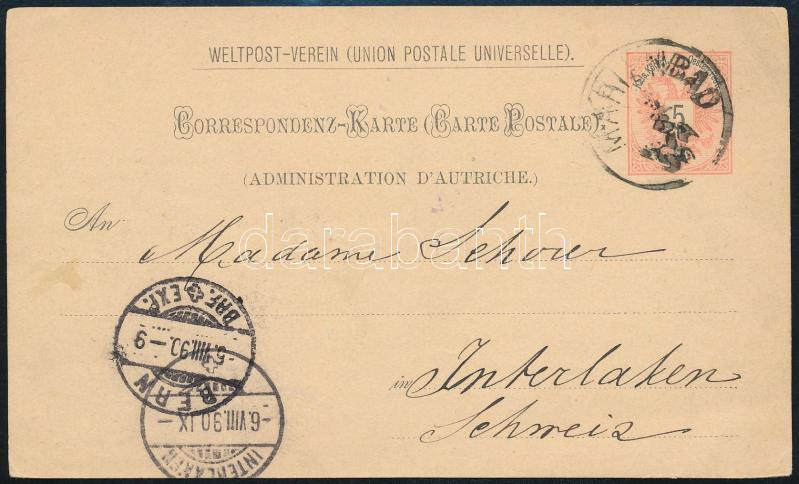 WELTPOST-VEREIN (UNION POSTALE UNIVERSELLE).
CORRESPONDENZ-KARTE (CARTE POSTALE).
(ADMINISTRATION D'AUTRICHE.)
MARIENBAD
5
An Madame Schorer
darabanth
in Interlaken
Schweiz
BRF. EXP.
5.VIII.90.–9
BERN
–6.VIII.90.IX–
INTERLAKEN